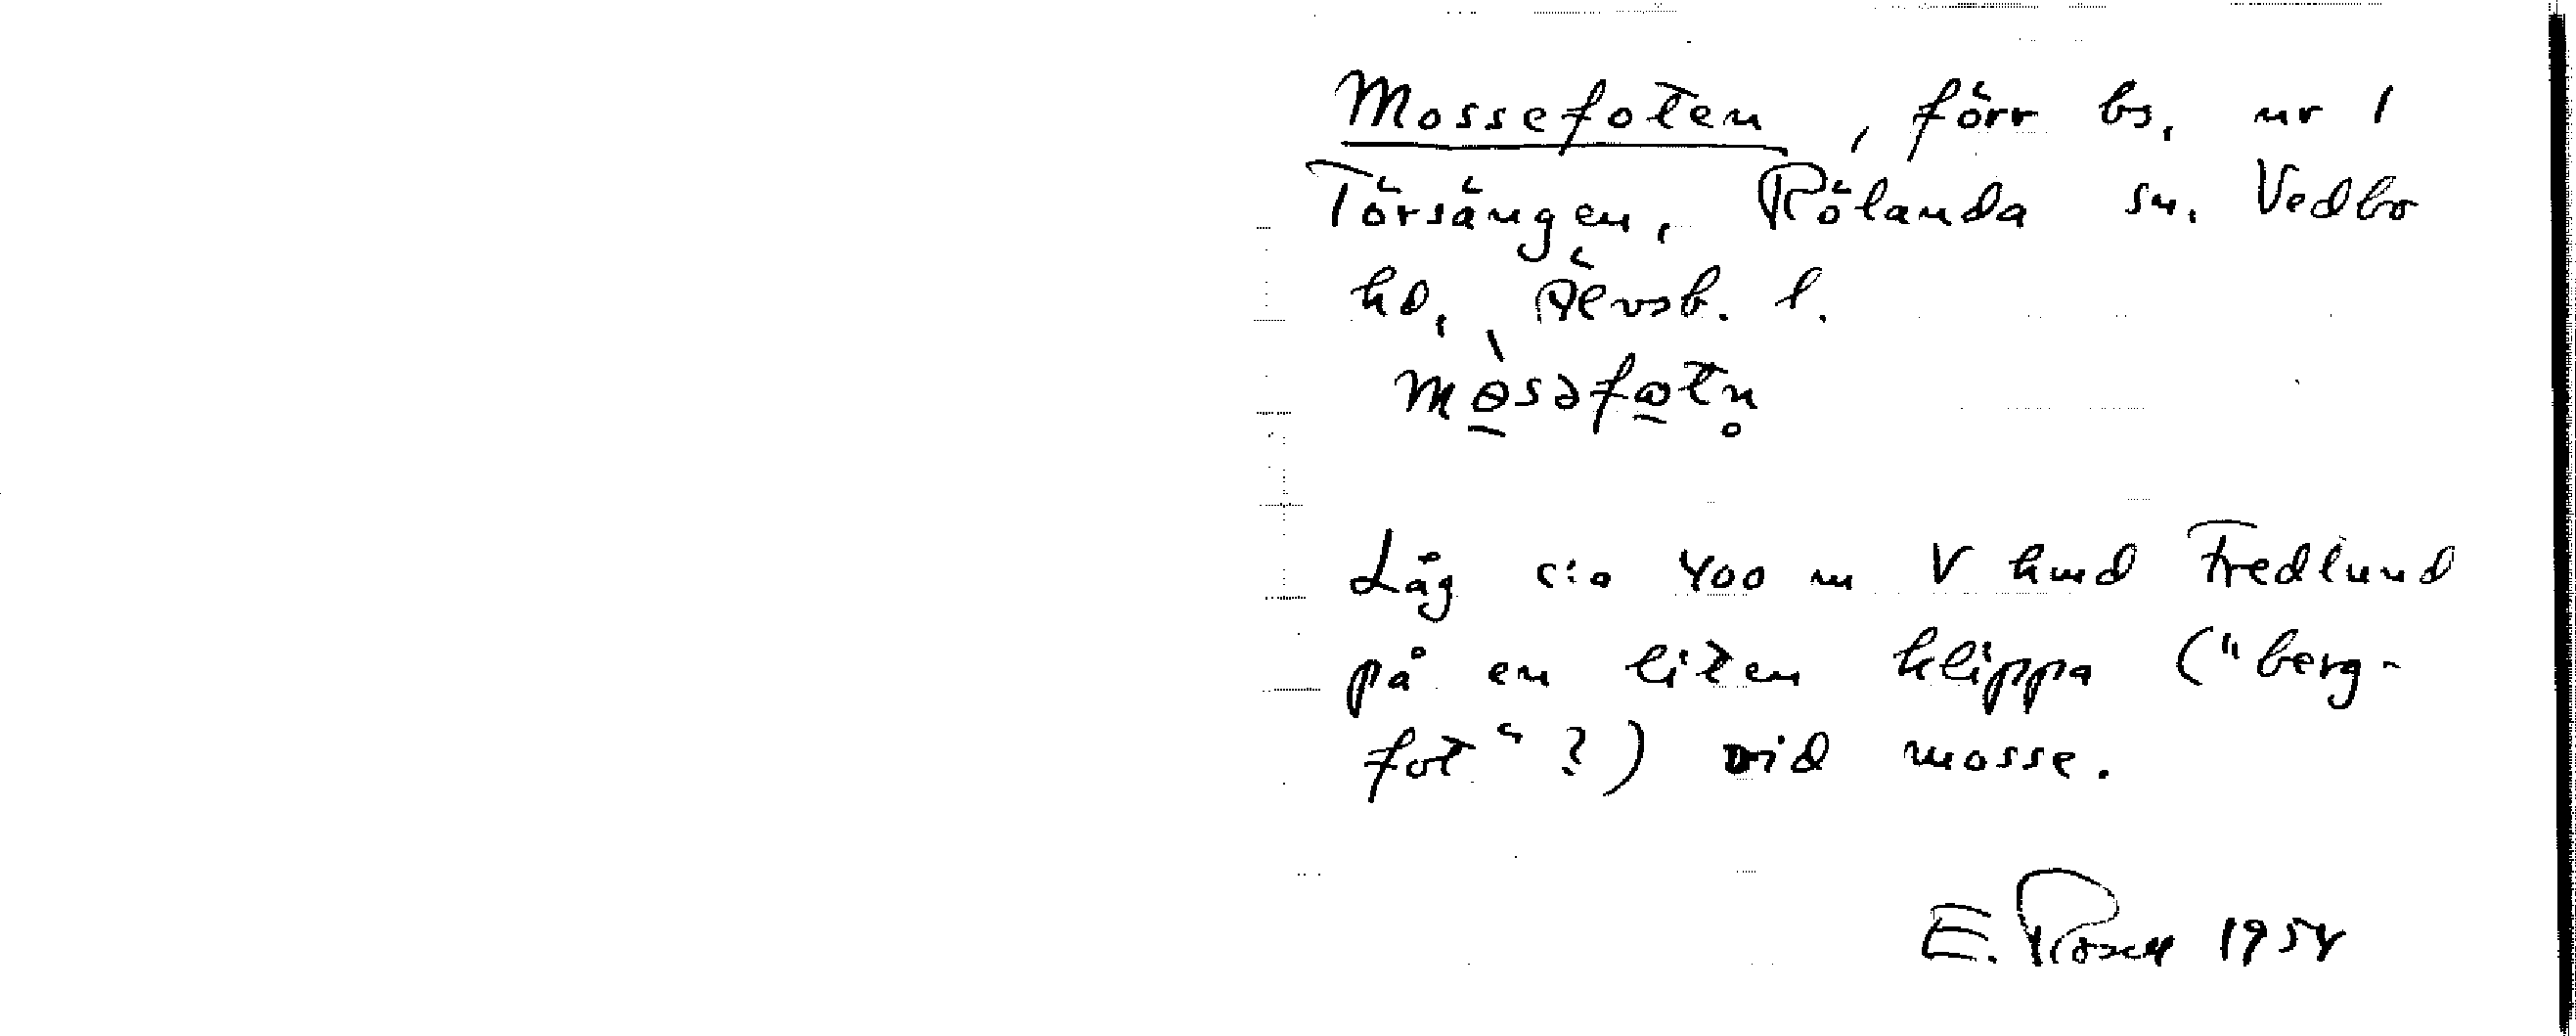 Mossefoten, förr bs, nr 1
Törsängen, Rölanda sn, Vedbo
hd, Älvsb. l.
mɵ̀səfɷtn̥
Låg c:a 400 m V hmd Fredlund
på en liten klippa ("berg-
fot"?) vid mosse.
E. Rosell 1954